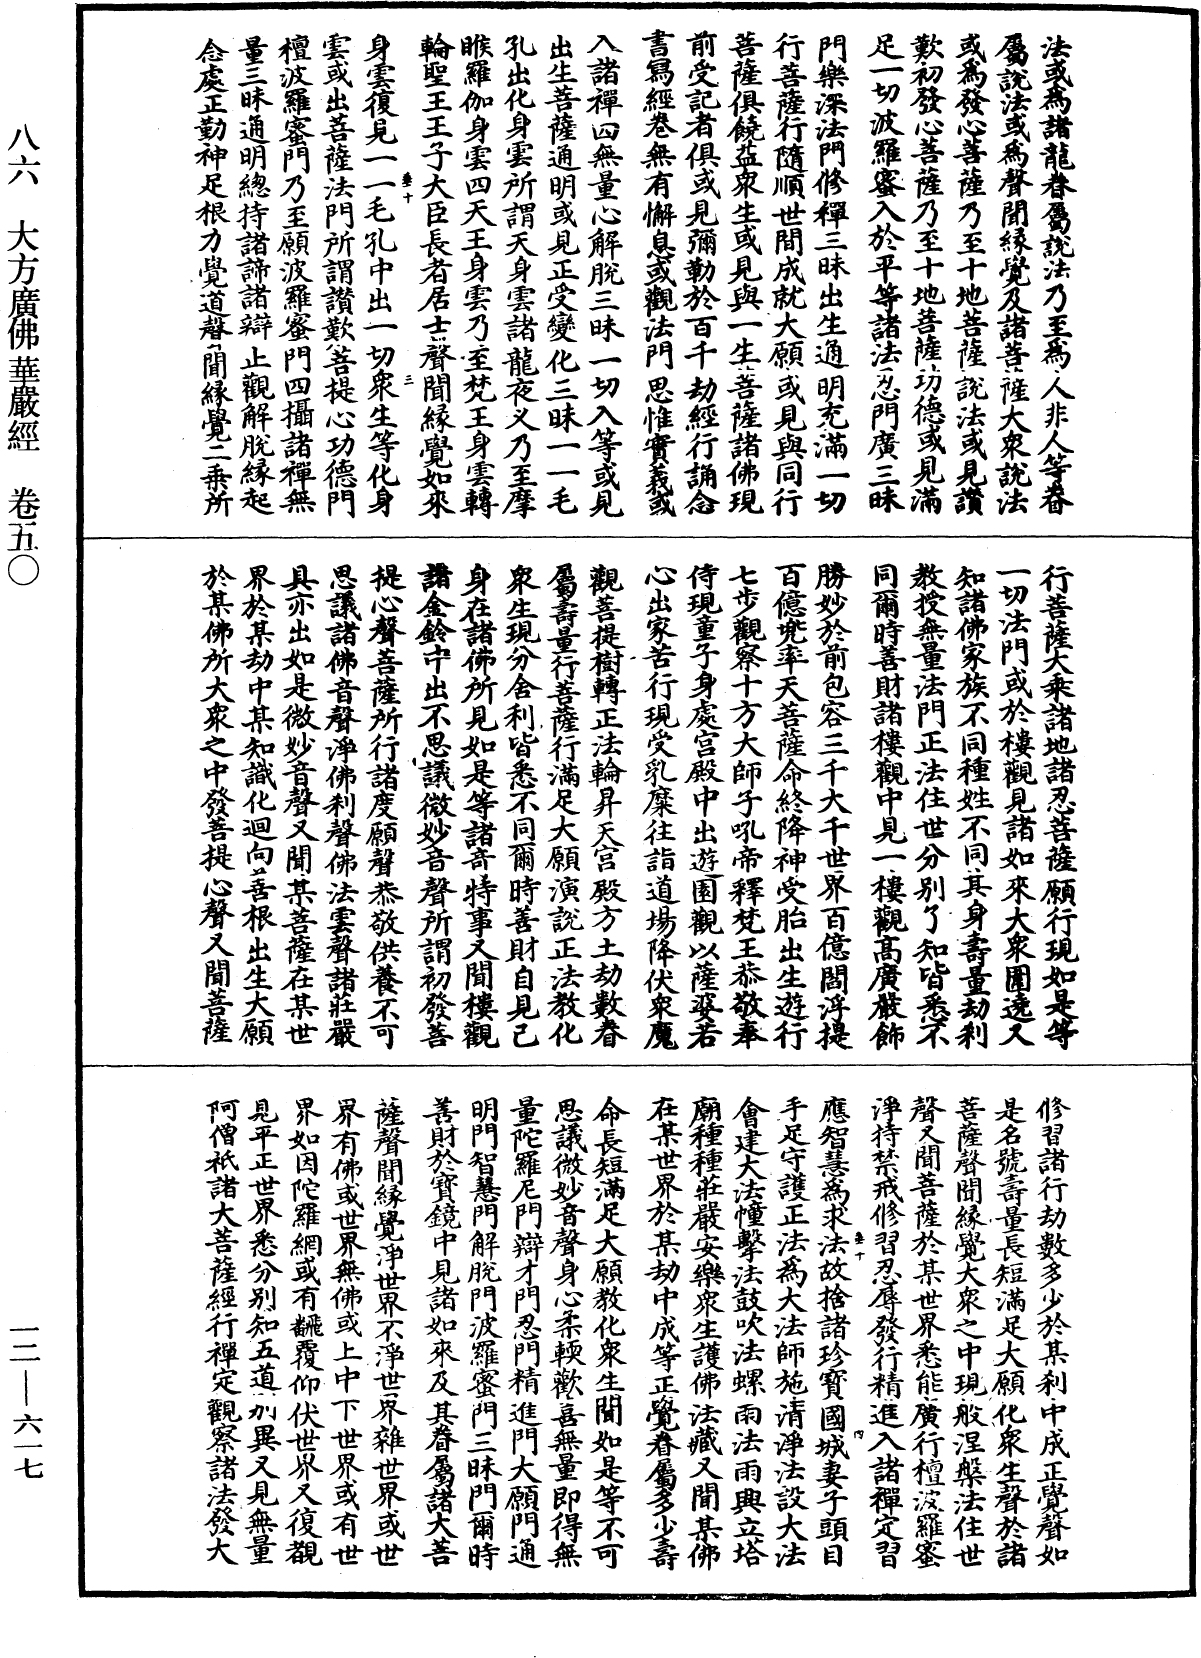 法或爲諸龍眷屬說法乃至爲人非人等眷
屬說法或爲聲聞緣覺及諸菩薩大衆說法
或爲發心菩薩乃至十地菩薩說法或見讚
歎初發心菩薩乃至十地菩薩功德或見滿
足一切波羅蜜入於平等諸法忍門廣三昧
門樂深法門修禪三昧出生通明充滿一切
行菩薩行隨順世間成就大願或見與同行
菩薩俱饒益衆生或見與一生菩薩諸佛現
前受記者俱或見彌勒於百千劫經行誦念
書寫經卷無有懈息或觀法門思惟實義或
入諸禪四無量心解脫三昧一切入等或見
出生菩薩通明或見正受變化三昧一一毛
孔出化身雲所謂天身雲諸龍夜叉乃至摩
睺羅伽身雲四天王身雲乃至梵王身雲轉
輪聖王王子大臣長者居士聲聞緣覺如來
身雲復見一一毛孔中出一切衆生等化身
雲或出菩薩法門所謂讚歎菩提心功德門
檀波羅蜜門乃至願波羅蜜門四攝諸禪無
量三昧通明總持諸諦諸辯止觀解脫緣起
念處正勤神足根力覺道聲聞緣覺二乘所
行菩薩大乘諸地諸忍菩薩願行現如是等
一切法門或於樓觀見諸如來大衆圍遶又
知諸佛家族不同種姓不同其身壽量劫刹
教授無量法門正法住世分別了知皆悉不
同爾時善財諸樓觀中見一樓觀高廣嚴飾
勝妙於前包容三千大千世界百億閻浮提
百億兜率天菩薩命終降神受胎出生遊行
七步觀察十方大師子吼帝釋梵王恭敬奉
侍現童子身處宮殿中出遊園觀以薩婆若
心出家苦行現受乳糜往詣道場降伏衆魔
觀菩提樹轉正法輪昇天宮殿方土劫數眷
屬壽量行菩薩行滿足大願演說正法教化
衆生現分舍利皆悉不同爾時善財自見己
身在諸佛所見如是等諸奇特事又聞樓觀
諸金鈴中出不思議微妙音聲所謂初發菩
提心聲菩薩所行諸度願聲恭敬供養不可
思議諸佛音聲淨佛刹聲佛法雲聲諸莊嚴
具亦出如是微妙音聲又聞某菩薩在某世
界於某劫中某知識化迴向善根出生大願
於某佛所大衆之中發菩提心聲又聞菩薩
修習諸行劫數多少於某刹中成正覺聲如
是名號壽量長短滿足大願化衆生聲於諸
菩薩聲聞緣覺大衆之中現般涅槃法住世
聲又聞菩薩於某世界悉能廣行檀波羅蜜
淨持禁戒修習忍辱發行精進入諸禪定習
應智慧爲求法故捨諸珍寶國城妻子頭目
手足守護正法爲大法師施清淨法設大法
會建大法幢擊法鼓吹法螺雨法雨興立塔
廟種種莊嚴安樂衆生護佛法藏又聞某佛
在某世界於某劫中成等正覺眷屬多少壽
命長短滿足大願教化衆生聞如是等不可
思議微妙音聲身心柔輭歡喜無量即得無
量陀羅尼門辯才門忍門精進門大願門通
明門智慧門解脫門波羅蜜門三昧門爾時
善財於寶鏡中見諸如來及其眷屬諸大菩
薩聲聞緣覺淨世界不淨世界雜世界或世
界有佛或世界無佛或上中下世界或有世
界如因陀羅網或有翻覆仰伏世界又復覩
見平正世界悉分別知五道別異又見無量
阿僧祇諸大菩薩經行禪定觀察諸法發大
垂十
三
垂十
四
八六 大方廣佛華嚴經 卷五〇
一二—六一七